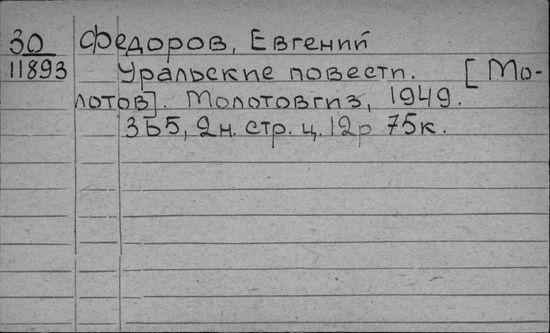 30 Федоров, Евгений
11893 Уральские повести. [Мо-
лотов]. Молотовгиз, 1949.
365, 2н. стр. ц. 12р 75к.